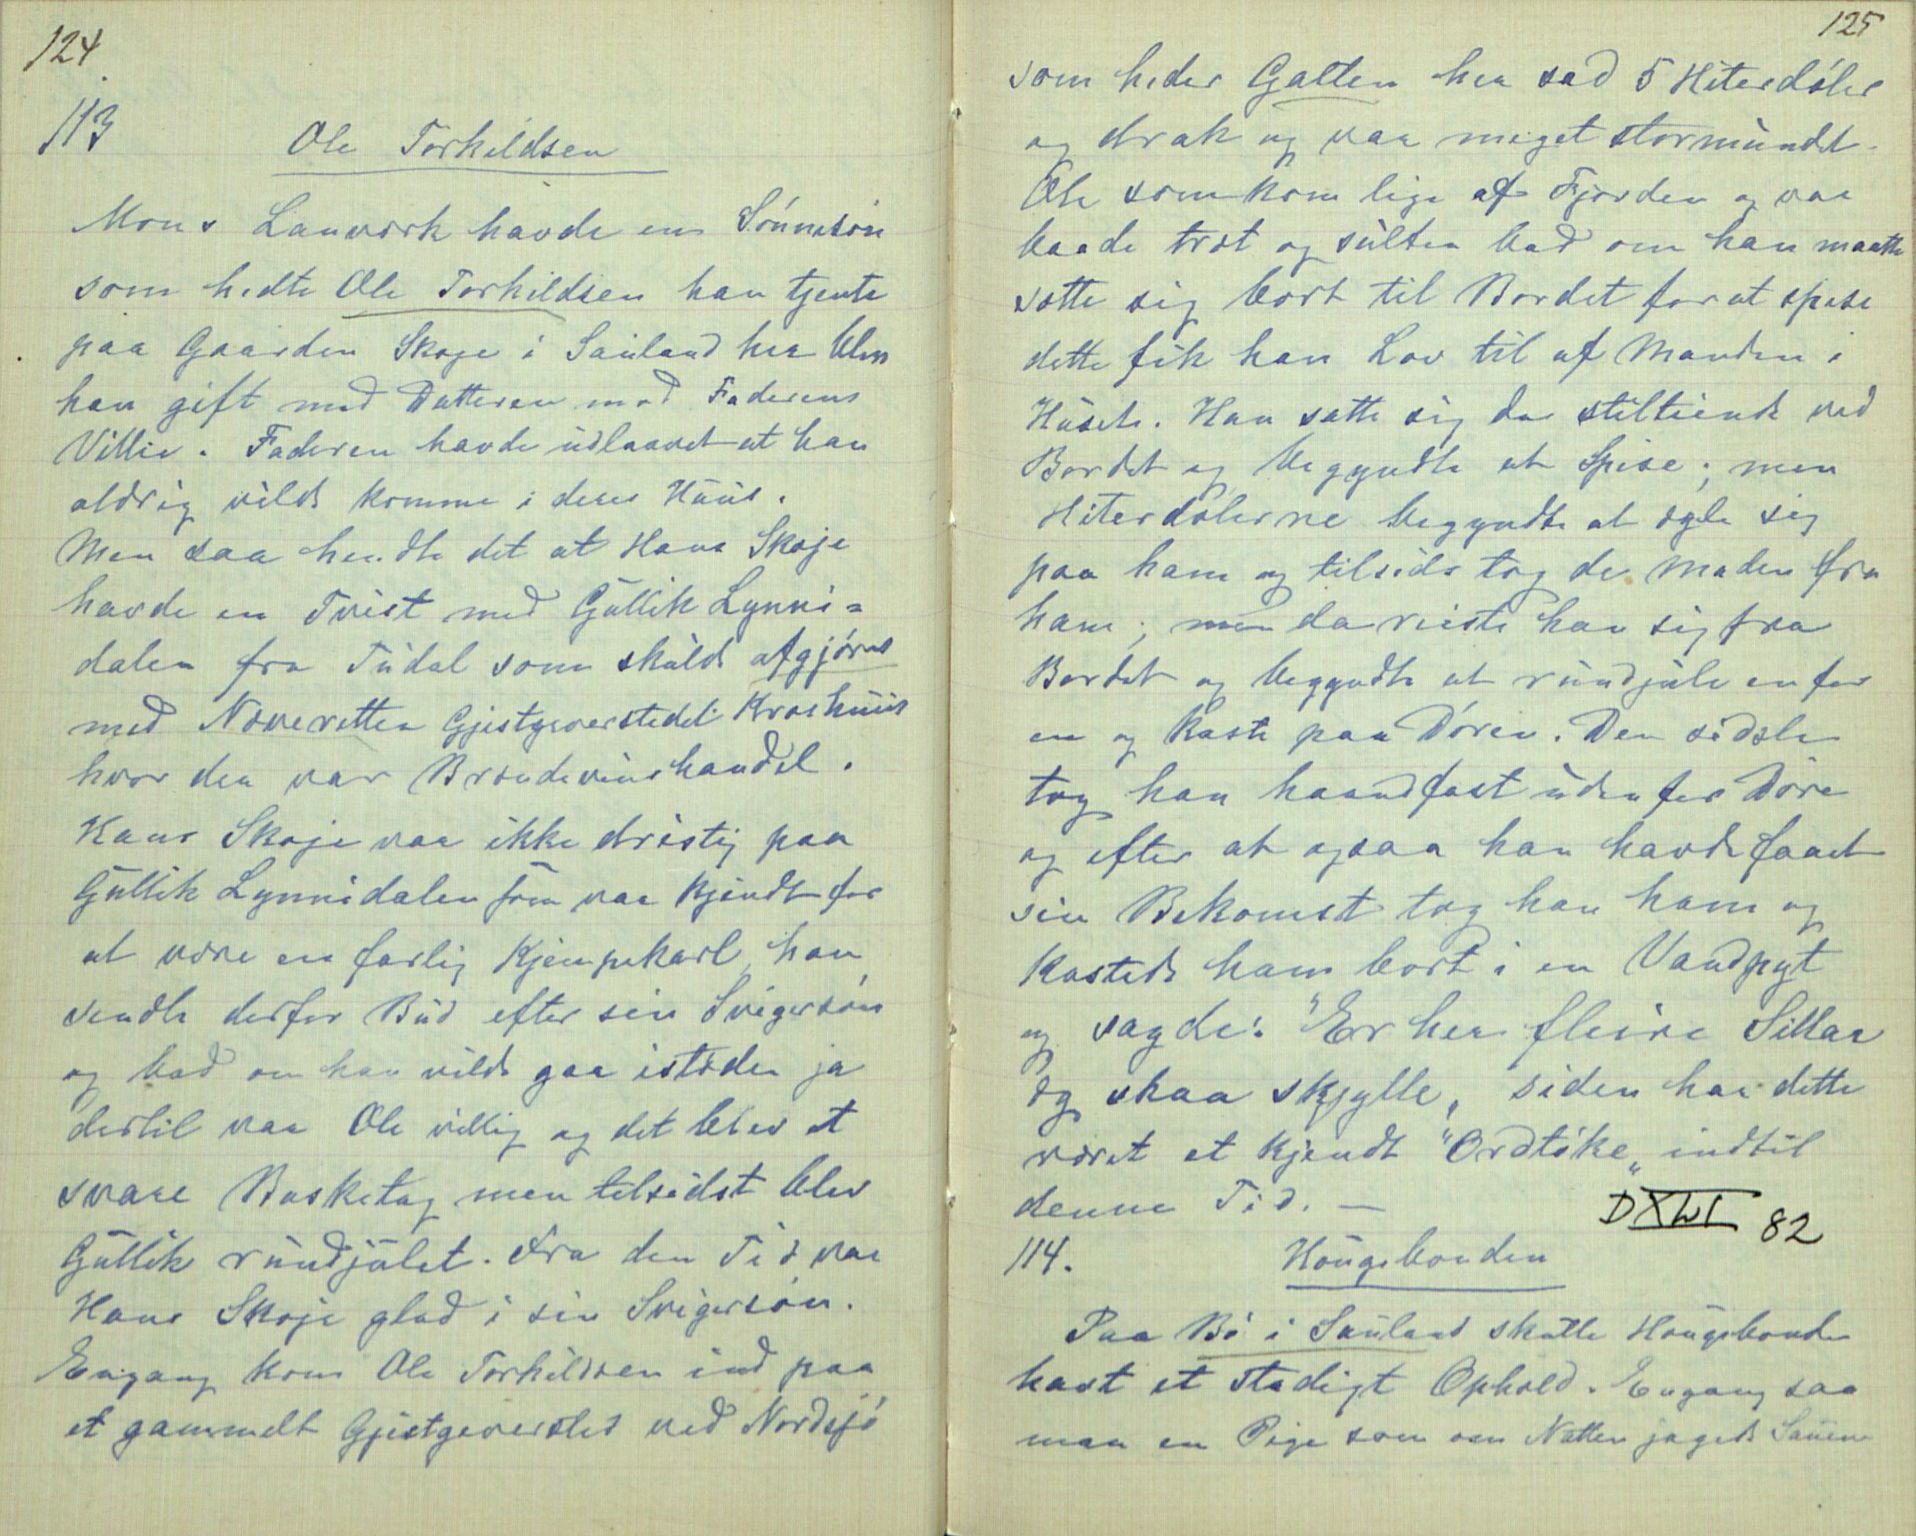 124
113
Ole Torkildsen
Mons Lanverk havde en Sönnesön
som hedte Ole Torkildsen han tjente
paa Gaarden Skoje i Sauland her blev
han gift med Datteren mod Faderens
Villie. Faderen havde udlaavet at han
aldrig vilde komme i deres Huus.
Men saa hendte det at Hans Skoje
havde en Tvist med Gullik Lynni=
dalen fra Tudal som skulde afgjöres
med Næveretten Gjestgeverstedet Kroshuus
hvor der var Brændevinshandel.
Hans Skoje var ikke dristig paa
Gullik Lynnidalen som var kjendt for
at være en farlig Kjempekarl, han
sendte derfor Bud efter sin Svigersön
og bad om han vilde gaa isteden ja
dertil var Ole villig og det blev et
svare Basketag men tilsidst blev
Gullik rundjulet. Fra den Tid var
Hans Skoje glad i sin Svigersön.
Engang kom Ole Torkildsen ind paa
et gammelt Gjestgeversted ved Nordsjö
125
som heder Galten her sad 5 Hiterdöler
og drak og var meget stormundet.
Ole som kom lige af Fjorden og var
baade træt og sulten bad om han maatte
sætte sig bort til Bordet for at spise
dette fik han Lov til af Manden i
Huset. Han satte sig da stiltiende ved
Bordet og begyndte at Spise; men
Hiterdölerne begyndte at egle sig
paa ham og tilsidst tog de Maden fra
ham; men da reiste han sig fra
Bordet og begyndte at rundjule en for
en og kaste paa Dören. Den sidste
tog han haandfast udenfor Döre
og efter at ogsaa han havde faaet
sin Bekomst tog han ham og
kastede ham bort i en Vandpyt
og sagde: "Er her fleire Sillar
og skaa skjylle„ siden har dette
været et kjendt "Ordtöke„ indtil
denne Tid. —
D XLVI 82
114.
Hougebonden
Paa Bö i Sauland skulle Hougebonden
havt et stadigt Ophold. Engang saa
man en Pige som om Natten jagede Sauene